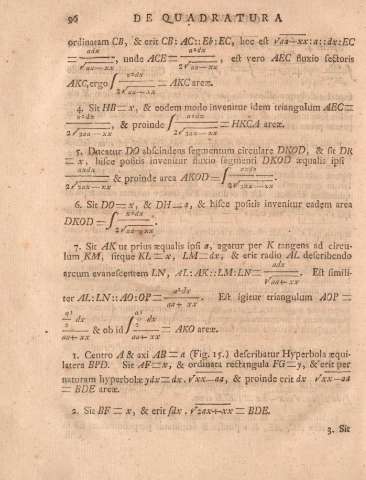 96 DE QUADRATURA
ordinatam CB, & erit CB: AC:: Eb: EC, hec est √aa−xx: a:: dx: EC
= adx / √aa−xx, unde ACE = a²dx / 2√aa−xx, est vero AEC fluxio sectoris
AKC, ergo ∫ a²dx / 2√aa−xx = AKC areæ.
4. Sit HB = x, & eodem modo invenitur idem triangulum AEC =
a²dx / 2√2ax−xx, & proinde ∫ a²dx / 2√2ax−xx = HKCA areæ.
5. Ducatur DO abscindens segmentum circulare DKOD, & sit DR
= x, hisce positis invenitur fluxio segmenti DKOD æqualis ipsi
axdx / 2√2ax−xx & proinde area AKOD = ∫ axdx / 2√2ax−xx.
6. Sit DO = x, & DH = a, & hisce positis invenitur eadem area
DKOD = ∫
7. Sit AK ut prius æqualis ipsi a, agatur per K tangens ad circulum
KM, sitque KL = x, LM = dx, & erit radio AL describendo
arcum evanescentem LN, AL: AK:: LM: LN = adx / √aa+xx. Est simili-
ter AL: LN:: AO: OP = a²dx / aa+xx. Est igitur triangulum AOP =
a³/2 dx / aa+xx & ob id ∫ a³/2 dx / aa+xx = AKO areæ.
1. Centro A & axi AB = a (Fig. 15.) describatur Hyperbola æqui-
latera BPD. Sit AF = x, & ordinata rectangula FG = y, & erit per
naturam hyperbolæ ydx = dx √xx−aa, & proinde erit dx √xx−aa
= BDE areæ.
2. Sit BF = x, & erit ſdx √2ax+xx = BDE.
3. Sit